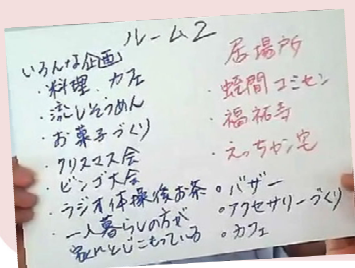 ルーム2
いろんな企画
・料理、カフェ
・流しそうめん
・お菓子づくり
・クリスマス会
・ビンゴ大会
・ラジオ体操後お茶
・一人暮らしの方が
家にとじこもっている
居場所
・蛭間コミセン
・福祐寺
・えっちゃん宅
・バザー
・アクセサリーづくり
・カフェ